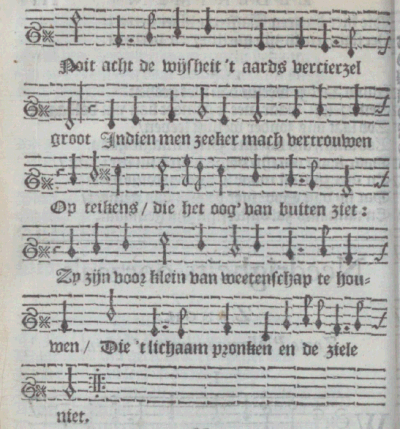 Noit acht de wijsheit 't aards vercierzel
groot Indien men zeeker mach vertrouwen
Op teikens / die het oog' van buiten ziet :
Zy zijn voor klein van weetenschap te hou-
wen / Die 't lichaam pronken en de ziele
niet.